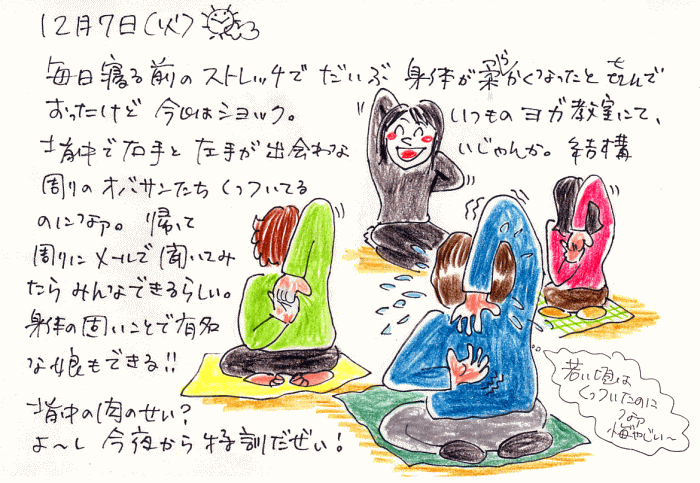 12月7日(火)
毎日寝る前のストレッチで だいぶ 身体が柔らかくなったと 喜んで
おったけど 今日はショック。
いつもの ヨガ教室にて、
背中で右手と 左手が 出会わな
いじゃんか。結構
周りの オバサンたち くっついてる
のになァ。帰って
周りに メールで 聞いてみ
たら みんなできるらしい。
身体の固いことで有名
な娘もできる!!
背中の肉のせい?
よ〜し 今夜から 特訓だぜい!
若い頃は
くっついたのに
なァ
悔やじい〜